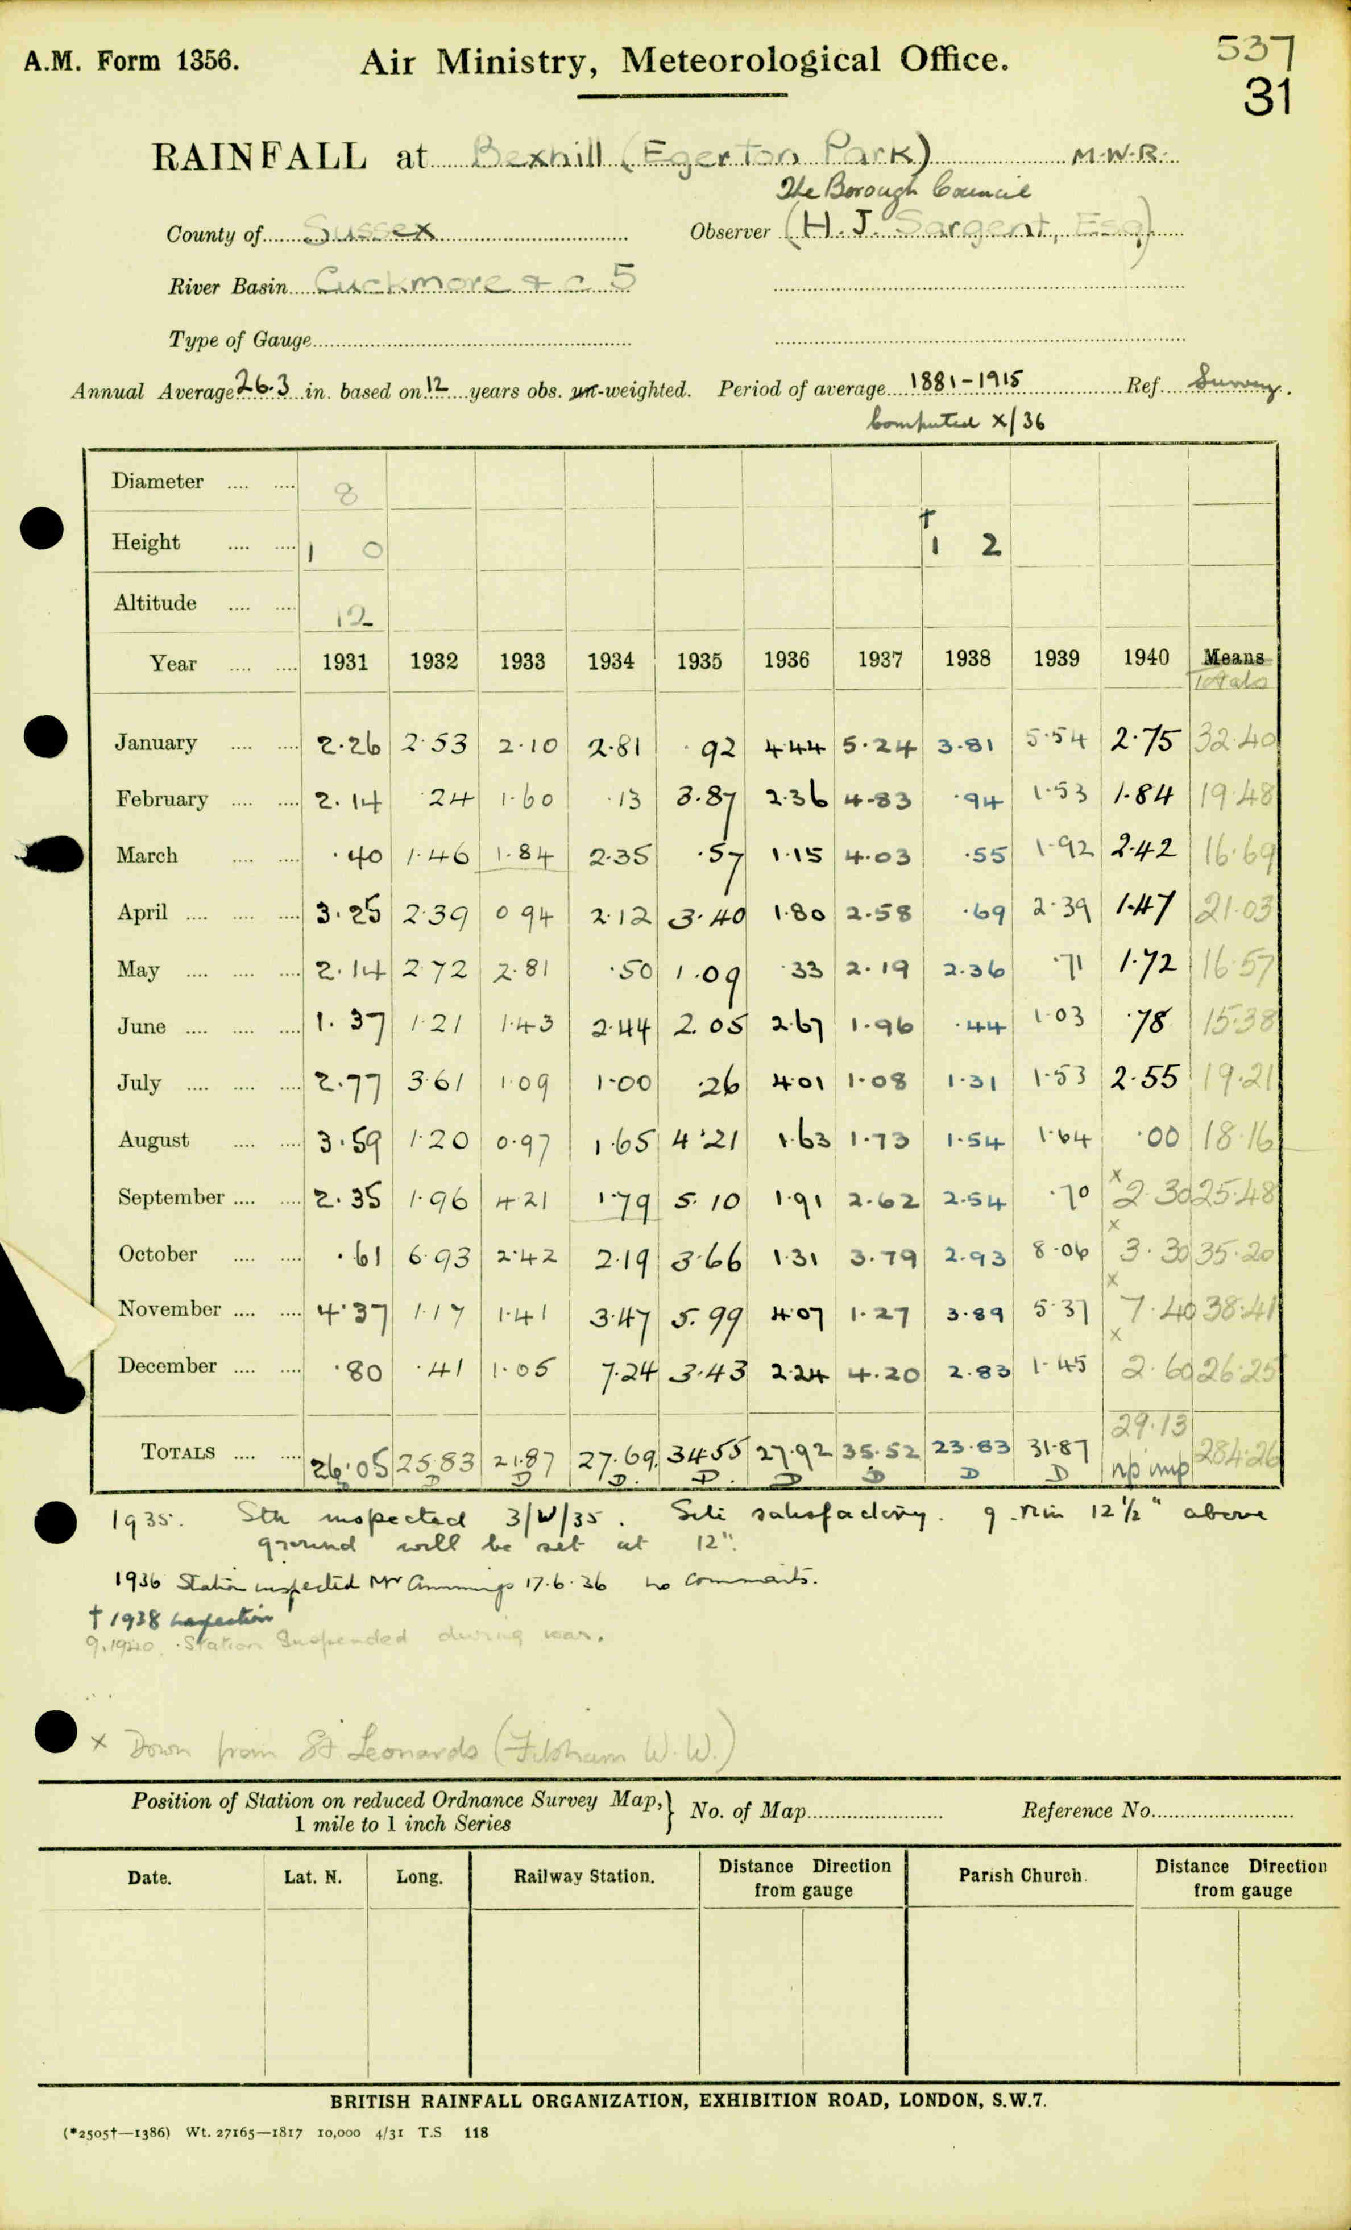 A.M. Form 1356. Air Ministry, Meteorological Office. 537
31
RAINFALL at Bexhill (Egerton Park) M.W.R.
The Borough Council
County of Sussex Observer (H. J. Sargent, Esq)
River Basin Cuckmore & c 5
Type of Gauge
Annual Average 26.3 in. based on 12 years obs. un-weighted. Period of average 1881-1915 Ref. Survey.
Computed X/36
Diameter 8
Height 1 0 † 1 2
Altitude 12
Year 1931 1932 1933 1934 1935 1936 1937 1938 1939 1940 Means
Totals
January 2.26 2.53 2.10 2.81 .92 4.44 5.24 3.81 5.54 2.75 32.40
February 2.14 .24 1.60 .13 3.87 2.36 4.83 .94 1.53 1.84 19.48
March .40 1.46 1.84 2.35 .57 1.15 4.03 .55 1.92 2.42 16.69
April 3.25 2.39 0.94 2.12 3.40 1.80 2.58 .69 2.39 1.47 21.03
May 2.14 2.72 2.81 .50 1.09 .33 2.19 2.36 .71 1.72 16.57
June 1.37 1.21 1.43 2.44 2.05 2.67 1.96 .44 1.03 .78 15.38
July 2.77 3.61 1.09 1.00 .26 4.01 1.08 1.31 1.53 2.55 19.21
August 3.59 1.20 0.97 1.65 4.21 1.63 1.73 1.54 1.64 .00 18.16
September 2.35 1.96 4.21 1.79 5.10 1.91 2.62 2.54 .70 x2.30 25.48
October .61 6.93 2.42 2.19 3.66 1.31 3.79 2.93 8.06 x3.30 35.20
November 4.37 1.17 1.41 3.47 5.99 4.07 1.27 3.89 5.37 x7.40 38.41
December .80 .41 1.05 7.24 3.43 2.24 4.20 2.83 1.45 x2.60 26.25
TOTALS 26.05 25.83 21.87 27.69 34.55 27.92 35.52 23.83 31.87 29.13 284.26
D D D D D D D D np imp
1935. Stn inspected 3/IV/35. Site satisfactory. g. rim 12½" above
ground will be set at 12".
1936 Station inspected Mr Cummings 17.6.36 no comments.
† 1938 Inspection
9.1940. Station Suspended during war.
x Down from St Leonards (Filsham W.W.)
Position of Station on reduced Ordnance Survey Map, } No. of Map Reference No.
1 mile to 1 inch Series
Date. Lat. N. Long. Railway Station. Distance Direction from gauge Parish Church. Distance Direction from gauge
BRITISH RAINFALL ORGANIZATION, EXHIBITION ROAD, LONDON, S.W.7.
(*2505†—1386) Wt. 27165—1817 10,000 4/31 T.S 118